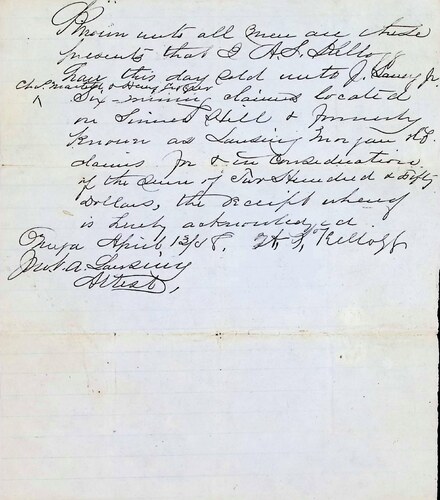 Known unto all Men are these
presents that I A.S. Kellogg
have this day sold unto J. Jr.
Chs. &
Six mining claims located
on Hill & formerly
Known as Lansing Morgan &
claims for & in Consideration
of the sum of Two Hundred & Fifty
Dollars, the receipt whereof
is hereby acknowledged.
April 13/ Kellogg
A. Lansing
Attest,